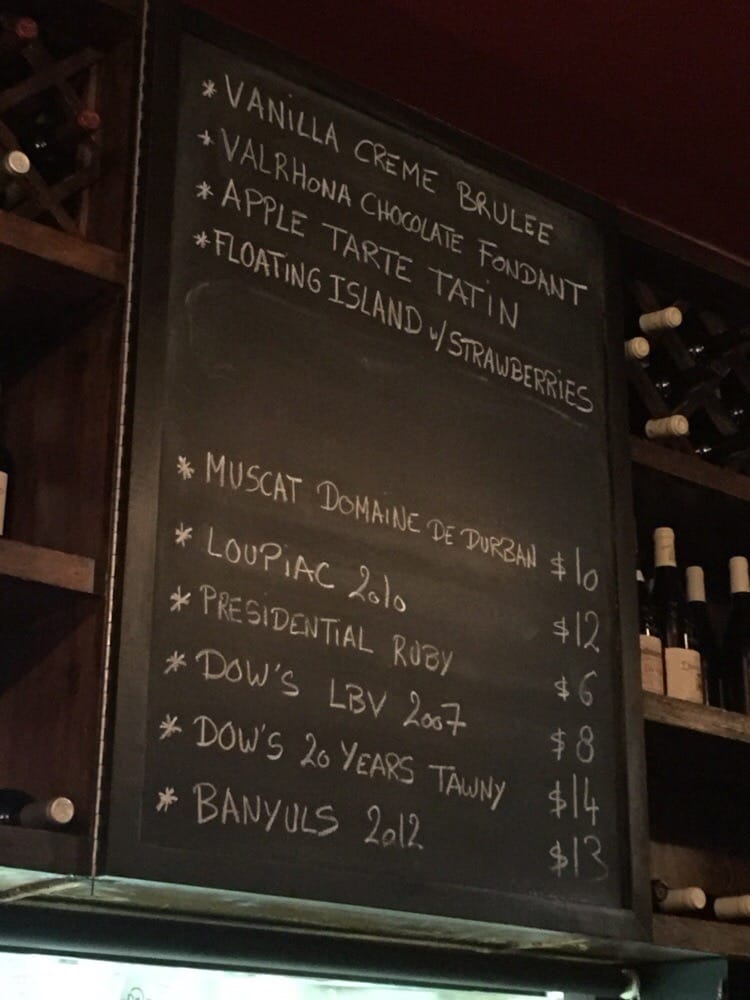 * VANILLA CREME BRULEE
* VALRHONA CHOCOLATE FONDANT
* APPLE TARTE TATIN
* FLOATING ISLAND w/ STRAWBERRIES
* MUSCAT DOMAINE DE DURBAN $10
* LOUPIAC 2010 $12
* PRESIDENTIAL RUBY $6
* DOW'S LBV 2007 $8
* DOW'S 20 YEARS TAWNY $14
* BANYULS 2012 $13